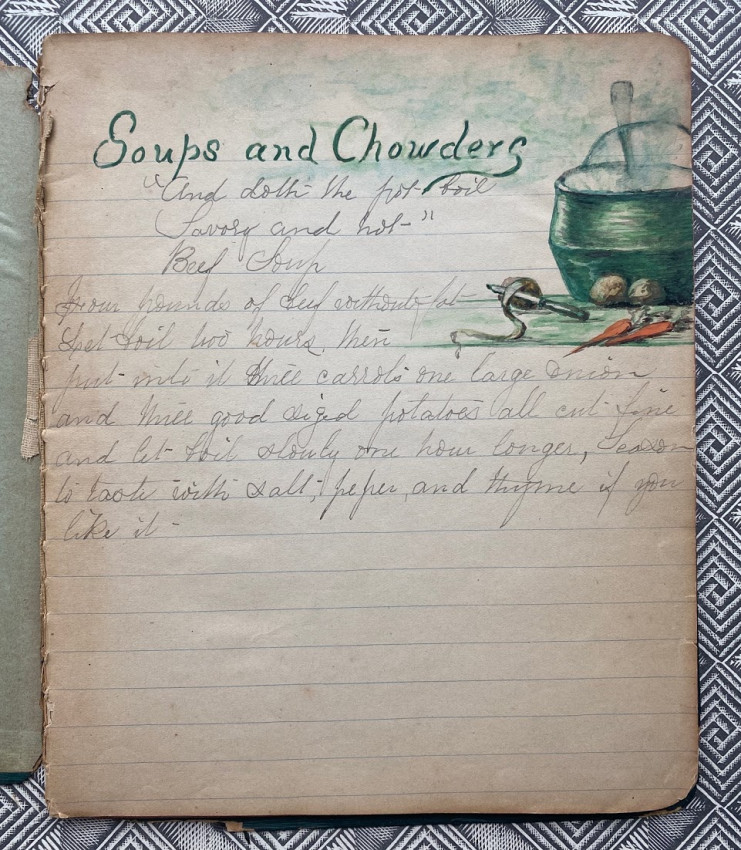 Soups and Chowders
"And doth the pot boil
Savory and hot"
Beef Soup
Four pounds of beef without fat
Let boil two hours, then
put into it three carrots one large onion
and three good sized potatoes all cut fine
and let boil slowly one hour longer, Season
to taste with salt, peper, and thyme if you
like it -